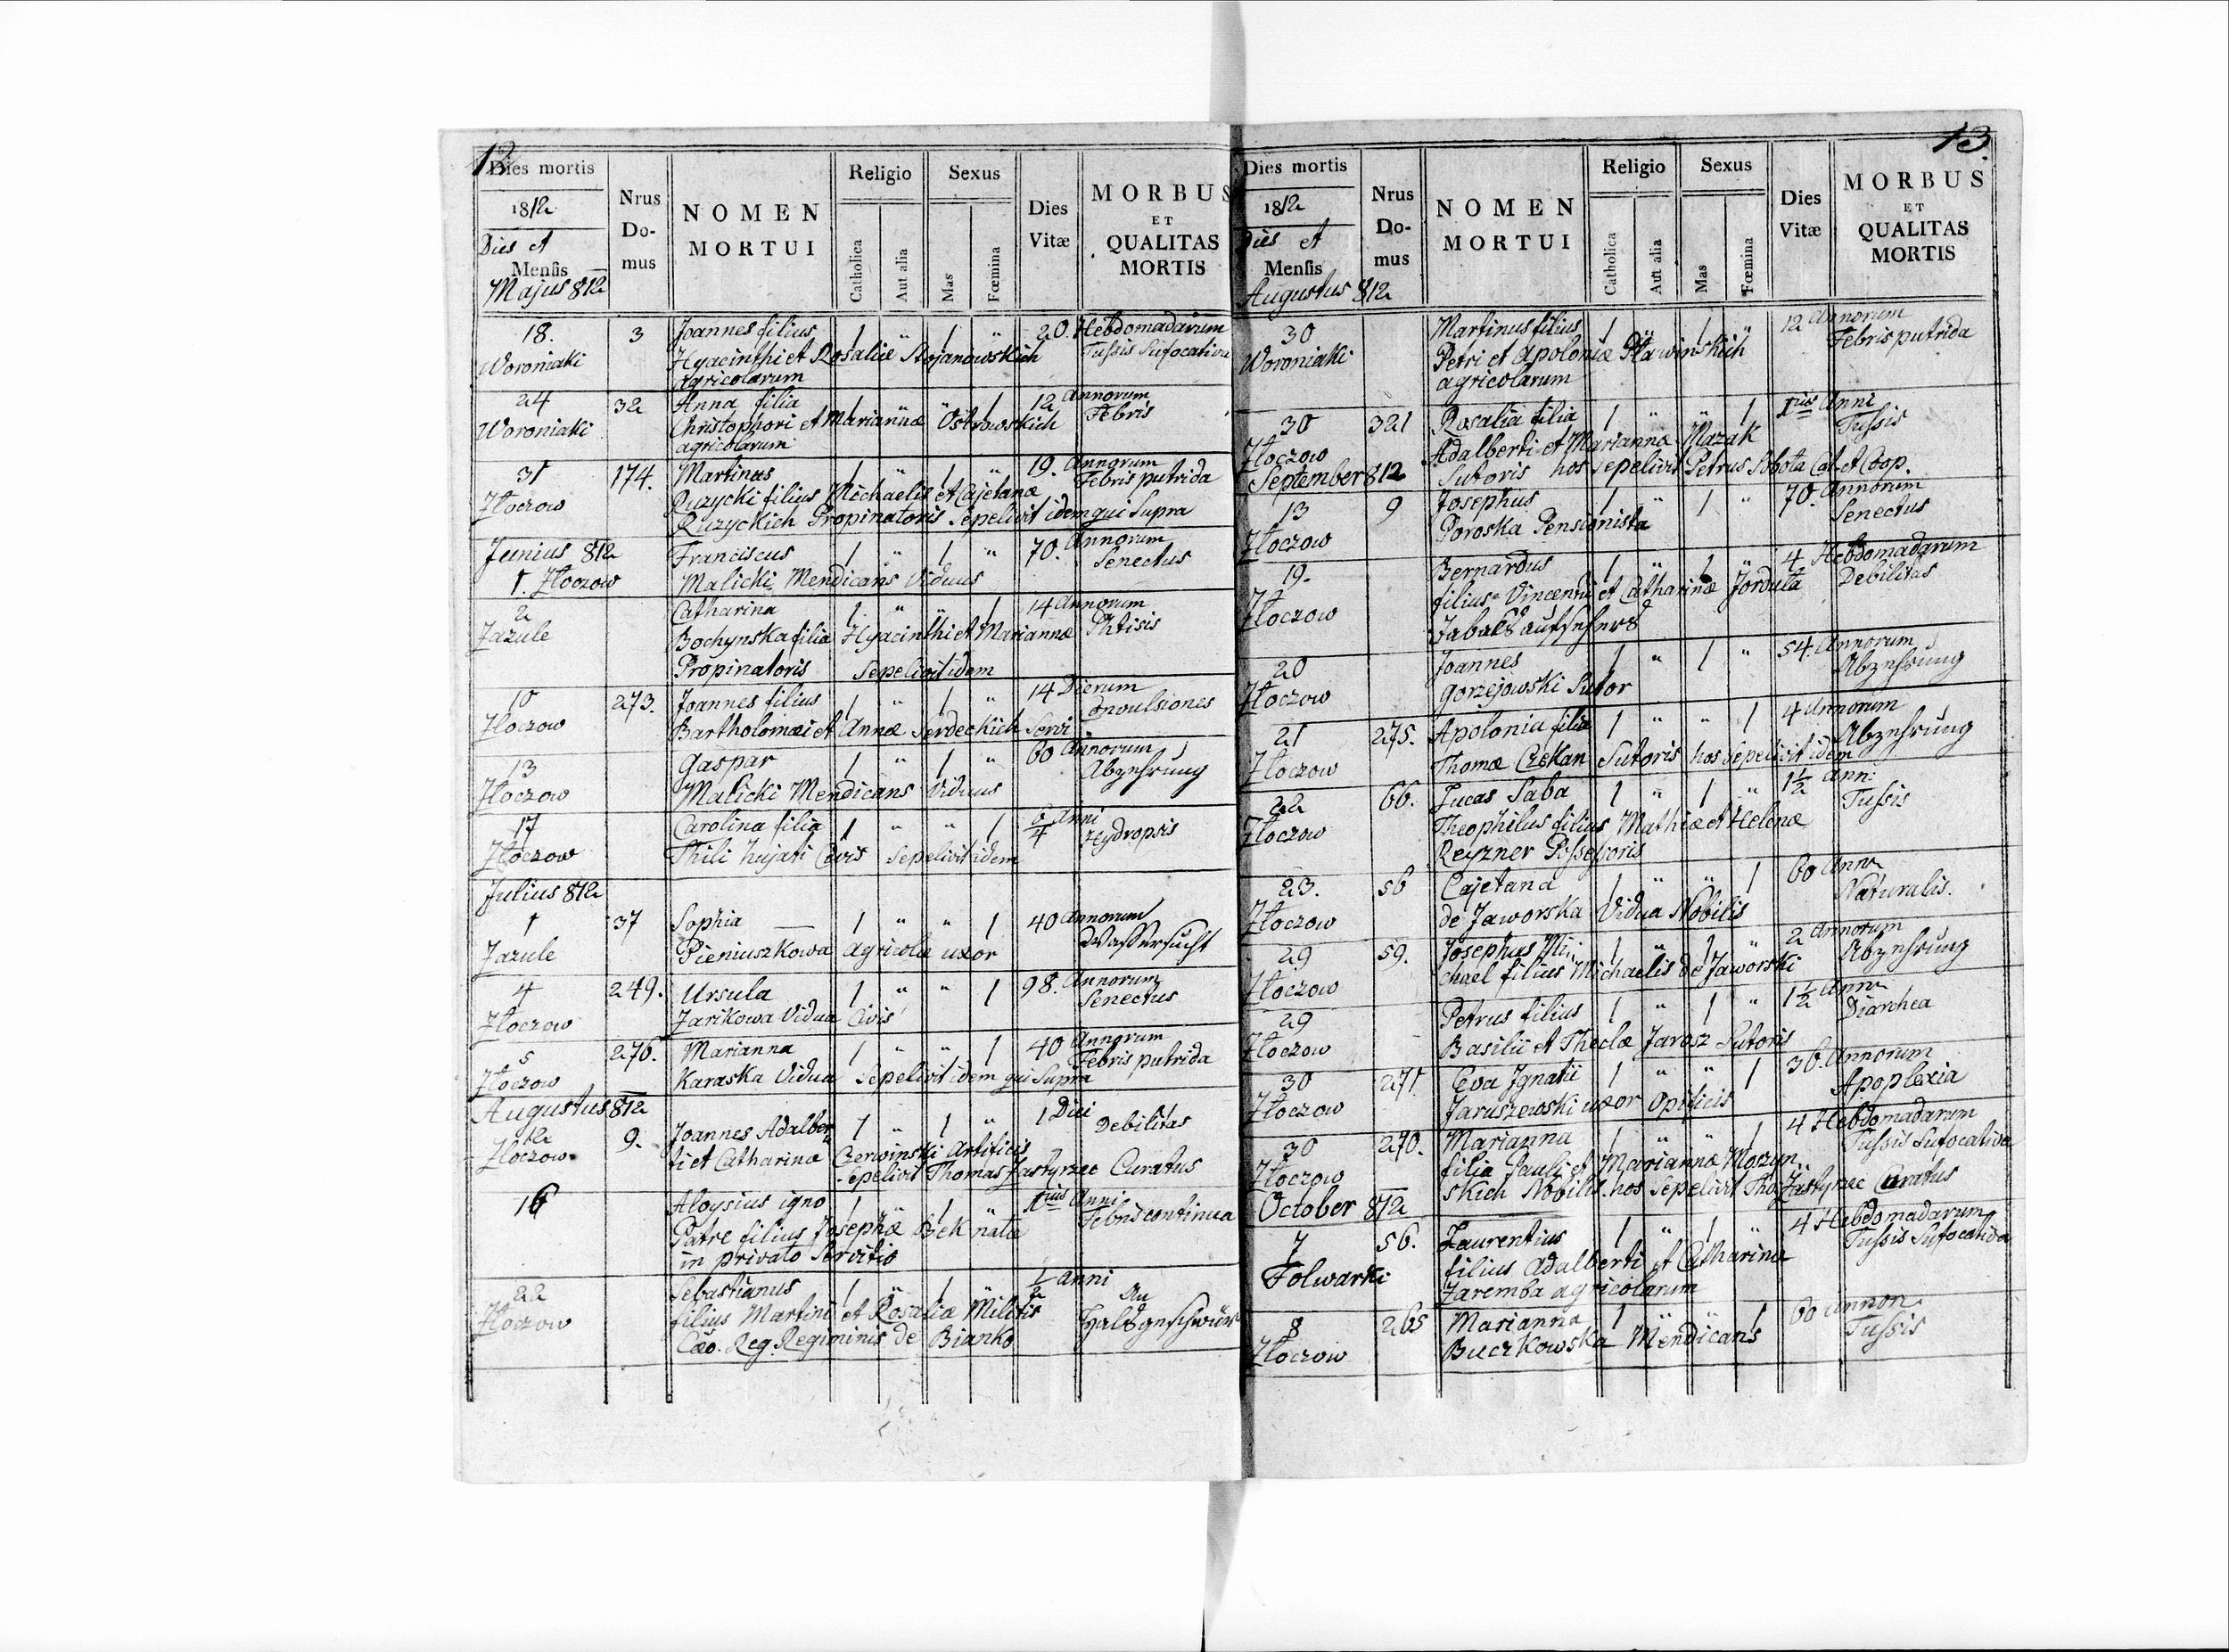 12
Dies mortis
1812
Dies et
Mensis
Majus 812
Nrus
Do-
mus
NOMEN
MORTUI
Religio
Catholica
Aut alia
Sexus
Mas
Fœmina
Dies
Vitæ
MORBUS
ET
QUALITAS
MORTIS
18. 3 Joannes filius 1 " 1 " 20. Hebdomadarum
Woroniaki Hyacinthi et Rosaliæ Stojanowskich Tussis Sufocativa
Agricolarum
24 32 Anna filia 1 " " 1 12 Annorum
Woroniaki Christophori et Mariannæ Ostrowskich Febris
agricolarum
31 174. Martinus 1 " 1 " 19. Annorum
Złoczow Ruzycki filius Michaelis et Cajetanæ Febris putrida
Ruzyckich Propinatoris Sepelivit idem qui Supra
Junius 812 Franciscus 1 " 1 " 70. Annorum
1. Złoczow Malicki Mendicans Viduus Senectus
2 Catharina 1 " " 1 14 Annorum
Zazule Bochynska filia Hyacinthi et Mariannæ Phtisis
Propinatoris Sepelivit idem
10 273. Joannes filius 1 " 1 " 14 Dierum
Złoczow Bartholomæi et Annæ Serdeckich Servi Convulsiones
13 Gaspar 1 " 1 " 60 Annorum
Złoczow Malicki Mendicans Viduus Abzehrung
17 Carolina filia 1 " " 1 6/4 Anni
Złoczow Thili hujati Civis Sepelivit idem Hydropsis
Julius 812
1 37 Sophia — 1 " " 1 40 Annorum
Zazule Pieniuszkowa agricolæ uxor Wassersucht
4 249. Ursula 1 " " 1 98. Annorum
Złoczow Zarikowa Vidua Civis Senectus
5 276. Marianna 1 " " 1 40 Annorum
Złoczow Karaska Vidua Sepelivit idem qui Supra Febris putrida
Augustus 812
12 9. Joannes Adalber 1 " 1 " 1 Diei
Złoczow ti et Catharinæ Czerwinski Artificis Debilitas
Sepelivit Thomas Jastyrzec Curatus
16 Aloysius igno 1 " 1 " 1ius Anni
Patre filius Josephæ Bek natæ Febris continua
in privato Servitio
22 Sebastianus 1 " 1 " 1/2 anni
Złoczow filius Martini et Rosaliæ Militis An
Cæo. Reg. Regiminis de Bianko Halsgeschwür
13.
Dies mortis
1812
Dies et
Mensis
Augustus 812
Nrus
Do-
mus
NOMEN
MORTUI
Religio
Catholica
Aut alia
Sexus
Mas
Fœmina
Dies
Vitæ
MORBUS
ET
QUALITAS
MORTIS
30 Martinus filius 1 " 1 " 12 Annorum
Woroniaki Petri et Apoloniæ Pławinskich Febris putrida
agricolarum
30 321 Rosalia filia 1 " " 1 1ius Anni
Złoczow Adalberti et Marianna Mazak Tussis
September 812 Sutoris hos Sepelivit Petrus Sobota Cat. et Coop.
13 9 Josephus 1 " 1 " 70. Annorum
Złoczow Poroska Pensionista Senectus
19. Bernardus 1 " 1 " 4 Hebdomadarum
Złoczow filius Vincentii et Catharinæ Jorduła Debilitas
Tabaks aufsehers
20 Joannes 1 " 1 " 54. Annorum
Złoczow Gorzejowski Sutor Abzehrung
21 275. Apolonia filia 1 " " 1 4 Annorum
Złoczow Thomæ Czekan Sutoris hos Sepelivit idem Abzehrung
22 66. Lucas Saba 1 " 1 " 1 1/2 Ann:
Złoczow Theophilus filius Mathiæ et Helenæ Tussis
Reyzner Possessoris
23. 56 Cajetana 1 " " 1 60 Ann
Złoczow de Jaworska Vidua Nobilis Naturalis.
29 59. Josephus Mi 1 " 1 " 2 Annorum
Złoczow chael filius Michaelis de Jaworski Abzehrung
29 Petrus filius 1 " 1 " 1 1/2 Ann
Złoczow Basilii et Theclæ Jarosz Sutoris Diarrhea
30 271 Eva Ignatii 1 " " 1 36. Annorum
Złoczow Jaruszewski uxor Opificis Apoplexia
30 270. Marianna 1 " " 1 4 Hebdomadarum
Złoczow filia Pauli et Mariannæ Moszyn Tussis Sufocativa
October 812 skich Nobilis. hos Sepelivit Tho. Jastyrzec Curatus
7 56. Laurentius 1 " 1 " 4 Hebdomadarum
Folwarki filius Adalberti et Catharinæ Tussis Sufocativa
Zaremba agricolarum
8 265 Marianna 1 " " 1 60 Annor.
Złoczow Buczkowska Mendicans Tussis